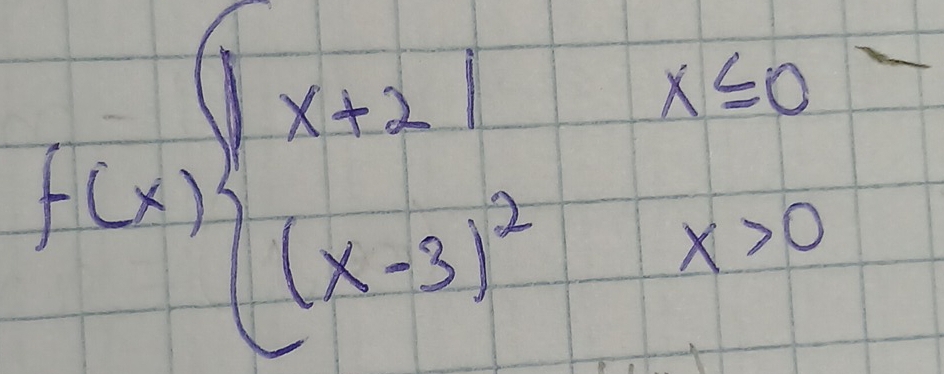 f(x) { |x+2| x≤0
(x-3)² x>0